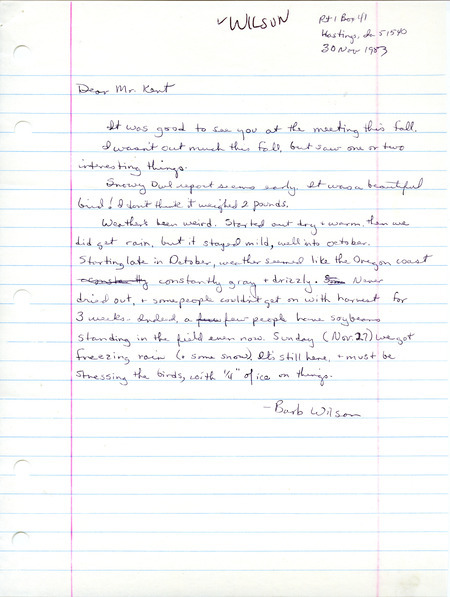 ✓WILSON
Rt 1 Box 41
Hastings, Ia 51540
30 Nov 1983
Dear Mr. Kent
It was good to see you at the meeting this fall.
I wasn't out much this fall, but saw one or two
interesting things.
Snowy Owl report seems early. It was a beautiful
bird! I don't think it weighed 2 pounds.
Weather's been weird. Started out dry + warm, then we
did get rain, but it stayed mild, well into October.
Starting late in October, weather seemed like the Oregon coast
constantly gray + drizzly. Never
dried out, + some people couldn't get on with harvest for
3 weeks. Indeed, a few people have soybeans
standing in the field even now. Sunday (Nov. 27) we got
freezing rain (+ some snow) It's still here, + must be
stressing the birds, with 1/4" of ice on things.
- Barb Wilson